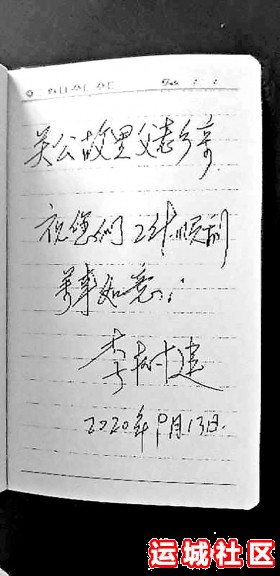 关公故里父老乡亲
祝您们工作顺利
万事如意;
李树建
2020年9月13日.
运城社区